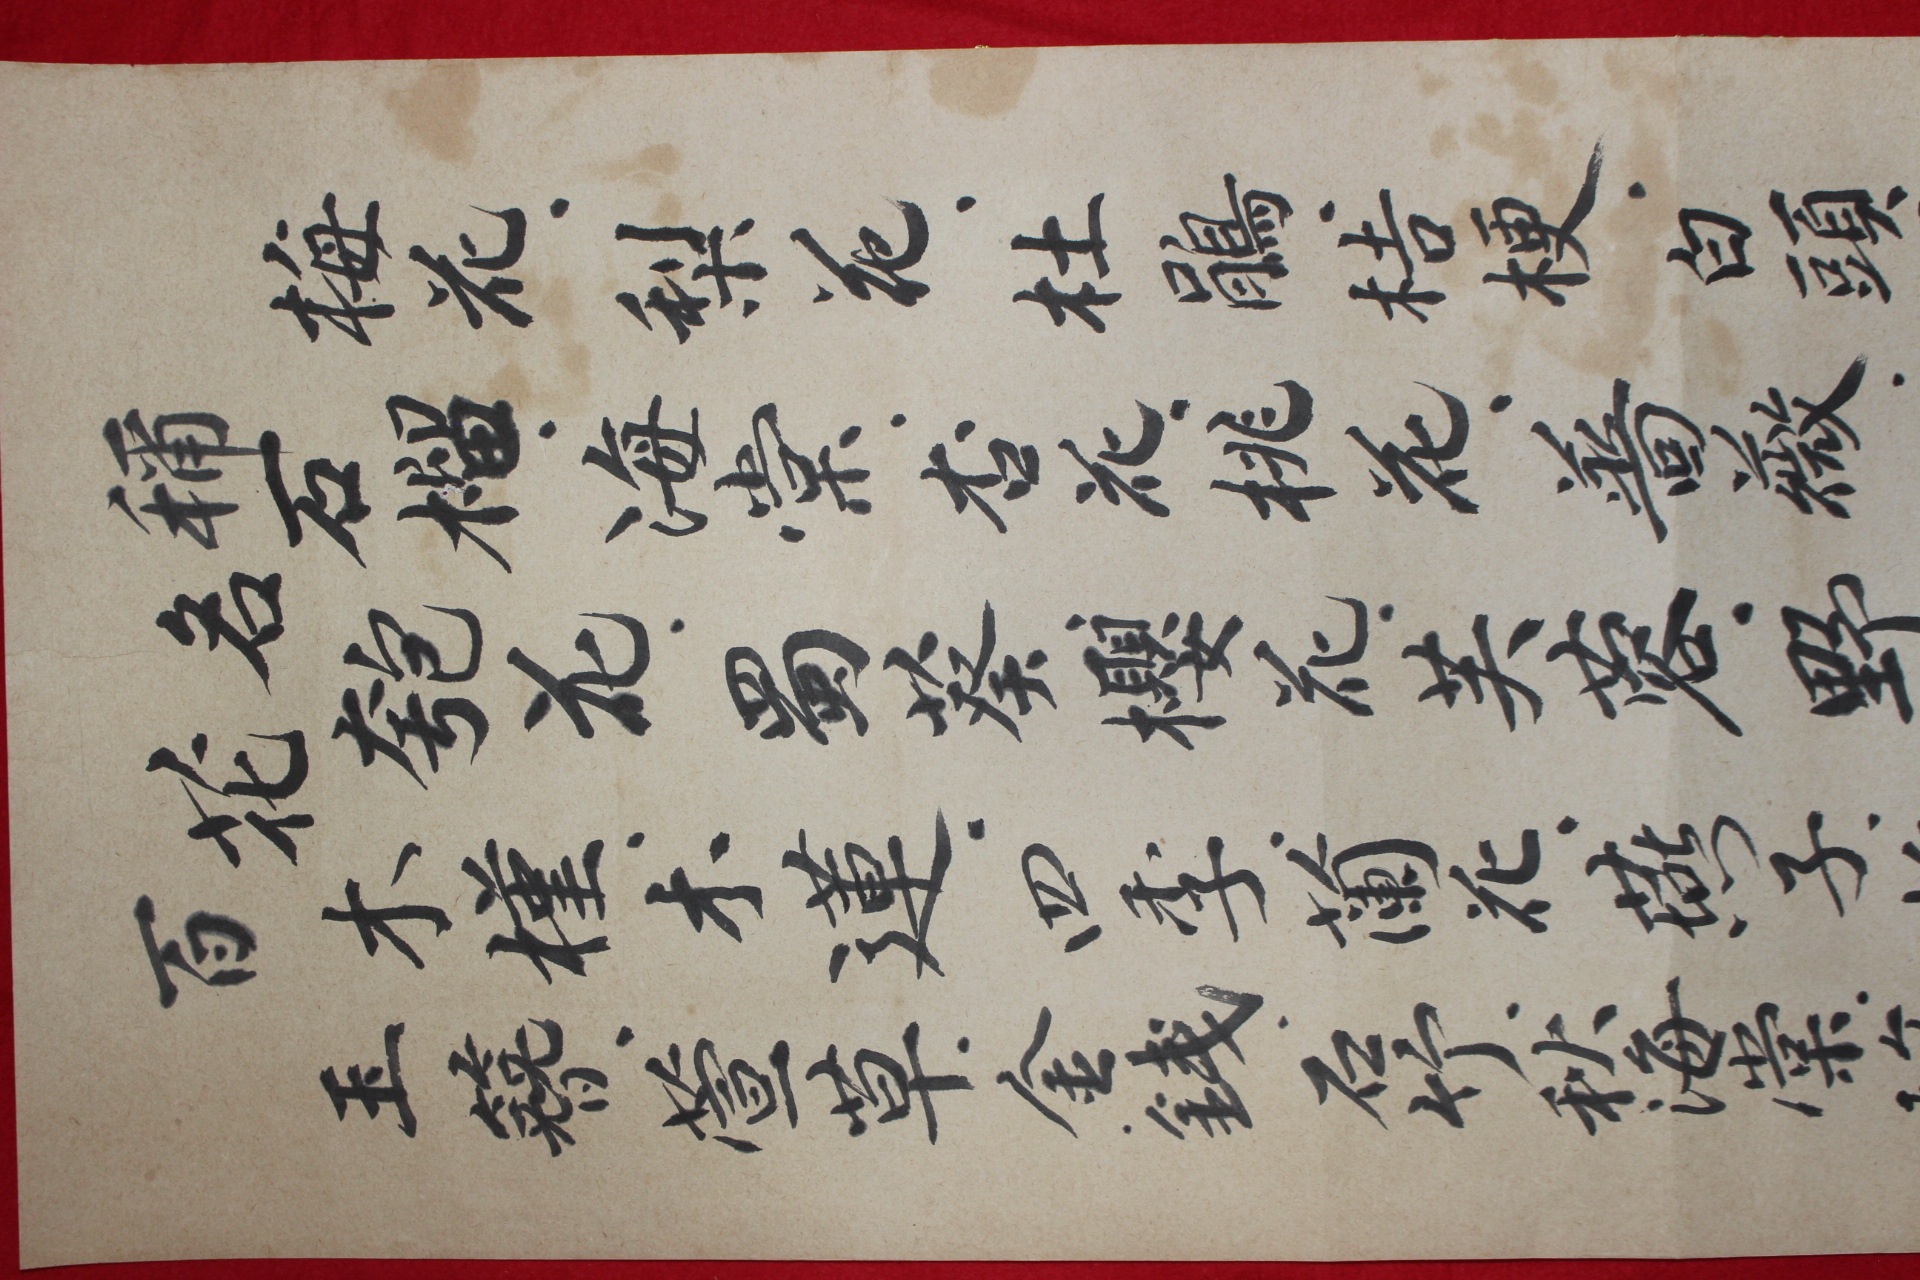 百花名稱
梅花、梨花、杜鵑、桔梗、白頭、
石榴、海棠、杏花、桃花、薔薇、
匏花、蜀葵、櫻花、芙蓉、野
木槿、木蓮、四季、蘭花、燕子、
玉簪、萱草、金錢、石竹、秋海棠、